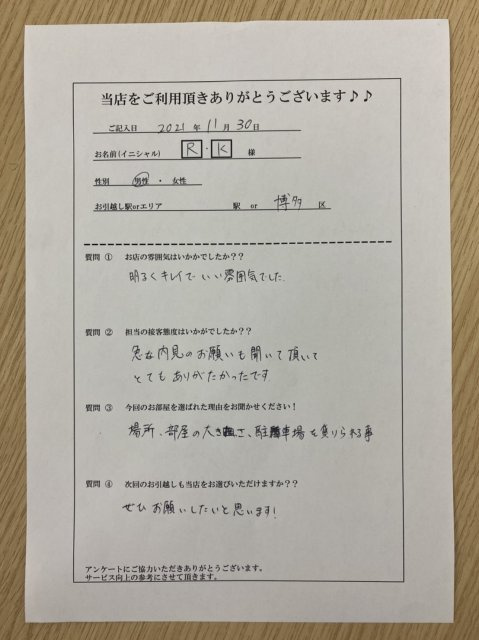 当店をご利用頂きありがとうございます♪♪
ご記入日 2021 年 11 月 30 日
お名前(イニシャル) R ・ K 様
性別 男性 ・ 女性
お引越し駅orエリア 駅 or 博多 区
質問 ① お店の雰囲気はいかかでしたか？？
明るくキレイでいい雰囲気でした
質問 ② 担当の接客態度はいかがでしたか？？
急な内見のお願いも聞いて頂いて
とてもありがたかったです
質問 ③ 今回のお部屋を選ばれた理由をお聞かせください！
場所、部屋の大きさ、駐車場を借りられる事
質問 ④ 次回のお引越しも当店をお選びいただけますか？？
ぜひお願いしたいと思います!
アンケートにご協力いただきありがとうございます。
サービス向上の参考にさせて頂きます。